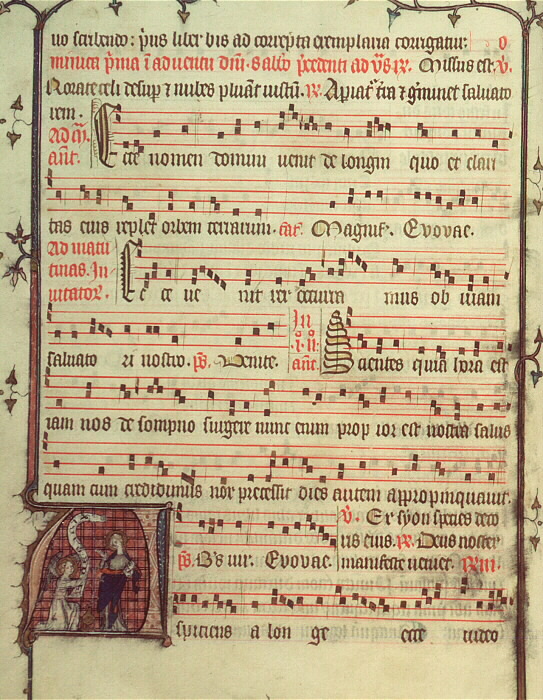 uo scribendo: prius liber bis ad correpta exemplaria corrigatur. O
minica prima in adventu dni. Sabbo precedenti ad vs R. Missus est. V.
Rorate celi desup et nubes pluant iustu. R. Apiat tra et gminet salvato
rem.
Ad M.
ant. Ecce nomen domini venit de longin quo et clari
tas eius replet orbem terrarum. cat. Magnif. Evovae.
Ad matu
tinas. In
vitator. Ecce ve nit rex occurra mus ob viam
salvato ri nostro. ps. Venite. In
.i. n.
ant. Scientes quia hora est
iam nos de sompno surgere nunc enim prop ior est nostra salus
quam cum credidimus nox precessit dies autem appropinquavit.
ps. Bs vir. Evovae. V. Ex syon species deco
ris eius. R. Deus noster
manifeste veniet.
spiciens a lon ge ecce video